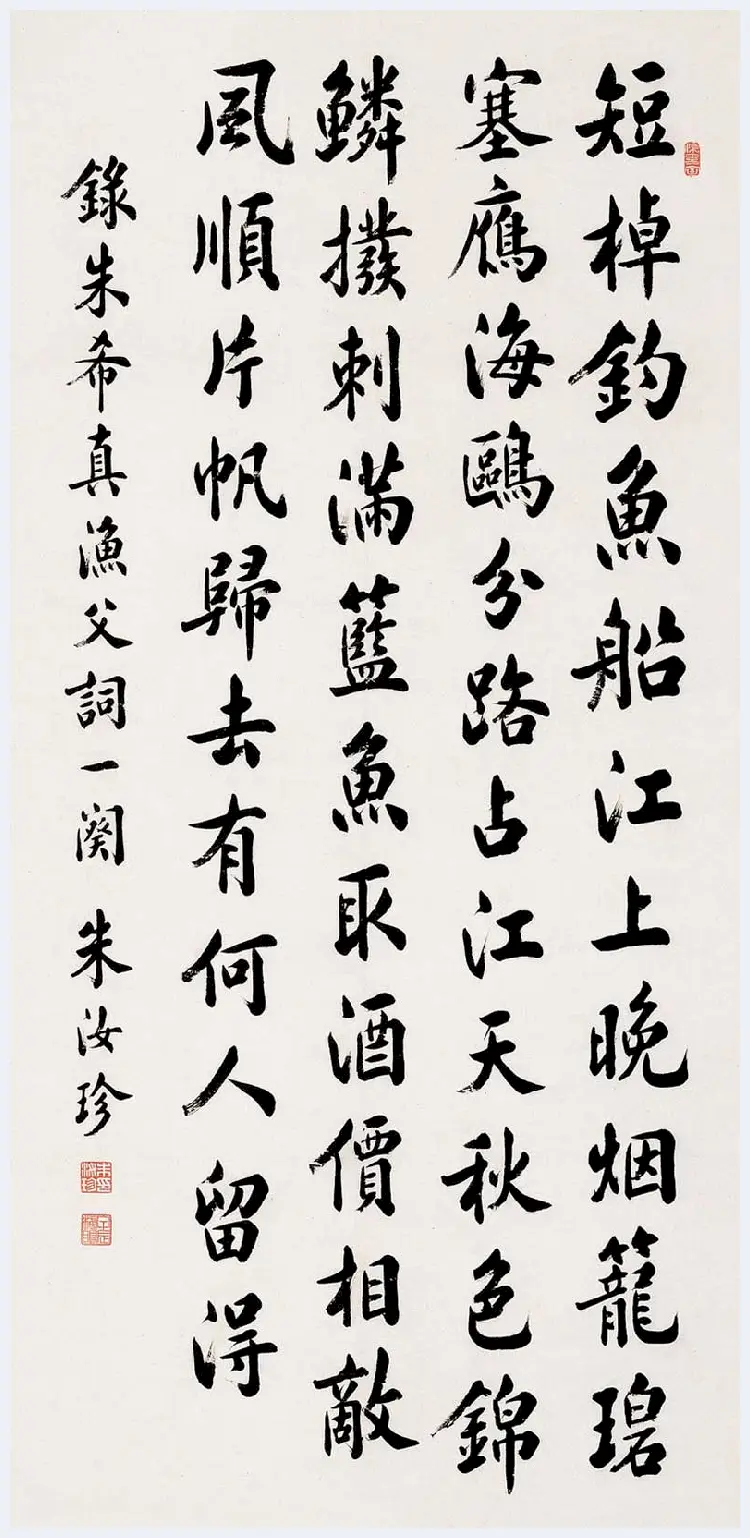 短棹釣魚船江上晚烟籠碧
塞鴈海鷗分路占江天秋色錦
鱗撥刺滿籃魚取酒價相敵
風順片帆歸去有何人留得
錄朱希真漁父詞一闋 朱汝珍
朱汝珍